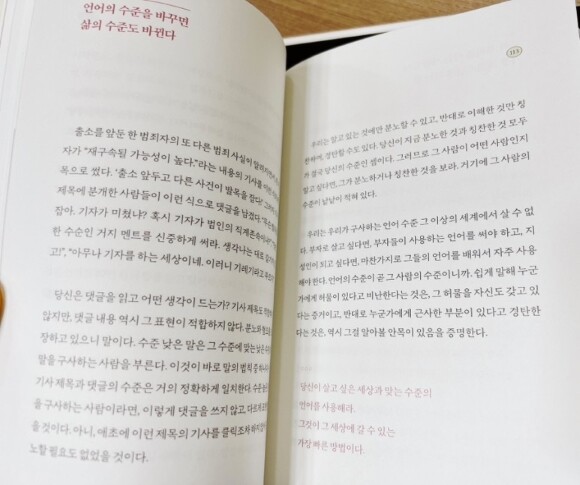 언어의 수준을 바꾸면
삶의 수준도 바뀐다
출소를 앞둔 한 범죄자의 또 다른 범죄 사실이
자가 "재구속될 가능성이 높다."라는 내용의 기사를
목으로 썼다. '출소 앞두고 다른 사건이 발목을 잡다!'
제목에 분개한 사람들이 이런 식으로 댓글을 남겼다.
잡아. 기자가 미쳤나? 혹시 기자가 범인의
한 수준인 거지 멘트를 신중하게 써라. 생각나는 대로
고!", "아무나 기자를 하는 세상이네. 이러니 기레기라고
당신은 댓글을 읽고 어떤 생각이 드는가? 기사 제목도
않지만, 댓글 내용 역시 그 표현이 적합하지 않다. 분노와
장하고 있으니 말이다. 수준 낮은 말은 그 수준에 맞는 낮은
말을 구사하는 사람을 부른다. 이것이 바로 말의 법칙 중
기사 제목과 댓글의 수준은 거의 정확하게 일치한다. 수준
을 구사하는 사람이라면, 이렇게 댓글을 쓰지 않고, 다르게
을 것이다. 아니, 애초에 이런 제목의 기사를 클릭조차 하지
노할 필요도 없었을 것이다.
113
우리는 알고 있는 것에만 분노할 수 있고, 반대로 이해한 것만 칭
찬하며, 경탄할 수도 있다. 당신이 지금 분노한 것과 칭찬한 것 모두
가 결국 당신의 수준인 셈이다. 그러므로 그 사람이 어떤 사람인지
알고 싶다면, 그가 분노하거나 칭찬한 것을 보라. 거기에 그 사람의
수준이 낱낱이 적혀 있다.
우리는 우리가 구사하는 언어 수준 그 이상의 세계에서 살 수 없
다. 부자로 살고 싶다면, 부자들이 사용하는 언어를 써야 하고, 지
성인이 되고 싶다면, 마찬가지로 그들의 언어를 배워서 자주 사용
해야 한다. 언어의 수준이 곧 그 사람의 수준이니까. 쉽게 말해 누군
가에게 허물이 있다고 비난한다는 것은, 그 허물을 자신도 갖고 있
다는 증거이고, 반대로 누군가에게 근사한 부분이 있다고 경탄한
다는 것은, 역시 그걸 알아볼 안목이 있음을 증명한다.
당신이 살고 싶은 세상과 맞는 수준의
언어를 사용해라.
그것이 그 세상에 갈 수 있는
가장 빠른 방법이다.